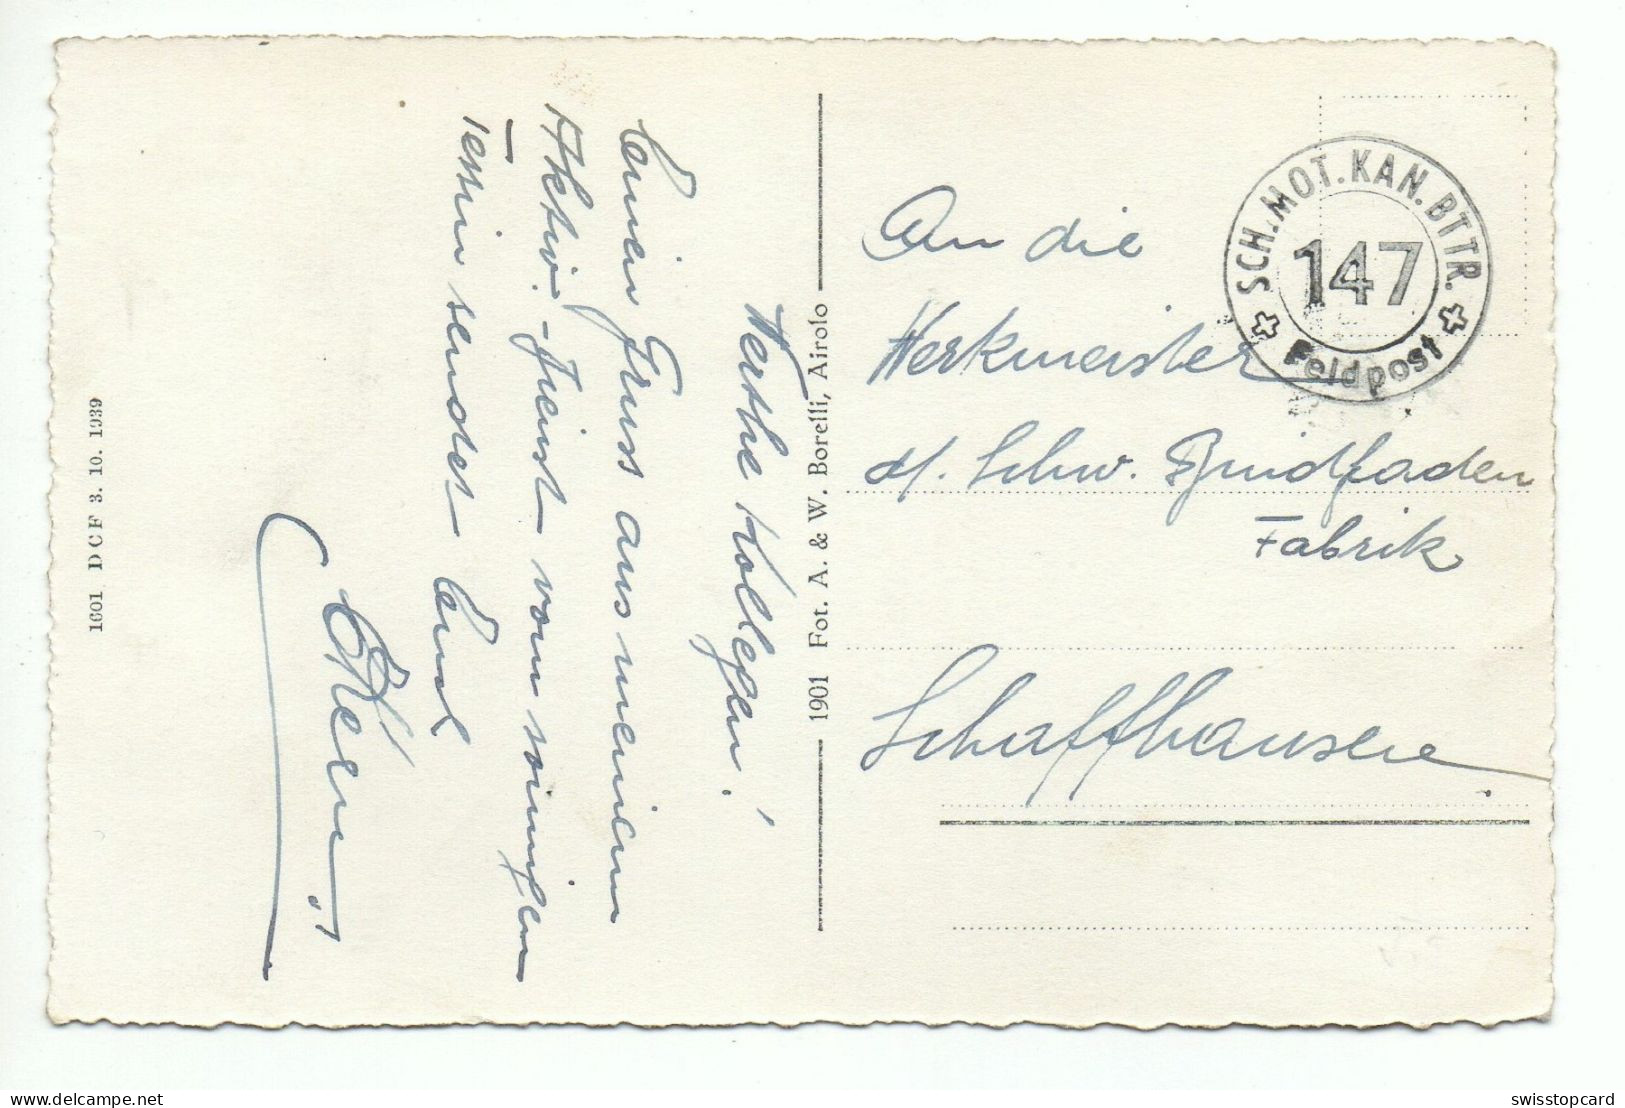 Werthe Kollegen!
Einen Gruss aus meinem
Aktiv-Dienst vom sonnigen
Tessin sendet Euch
E. Kern
1601 DCF 3. 10. 1939
1901 Fot. A. & W. Borelli, Airolo
SCH. MOT. KAN. BTTR.
147
Feldpost
An die
Werkmeister
d. Schw. Bindfaden
Fabrik
Schaffhausen
swisstopcard